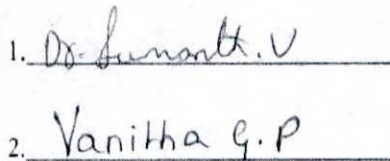 1. Dr. Sumanth. V
2. Vanitha G.P